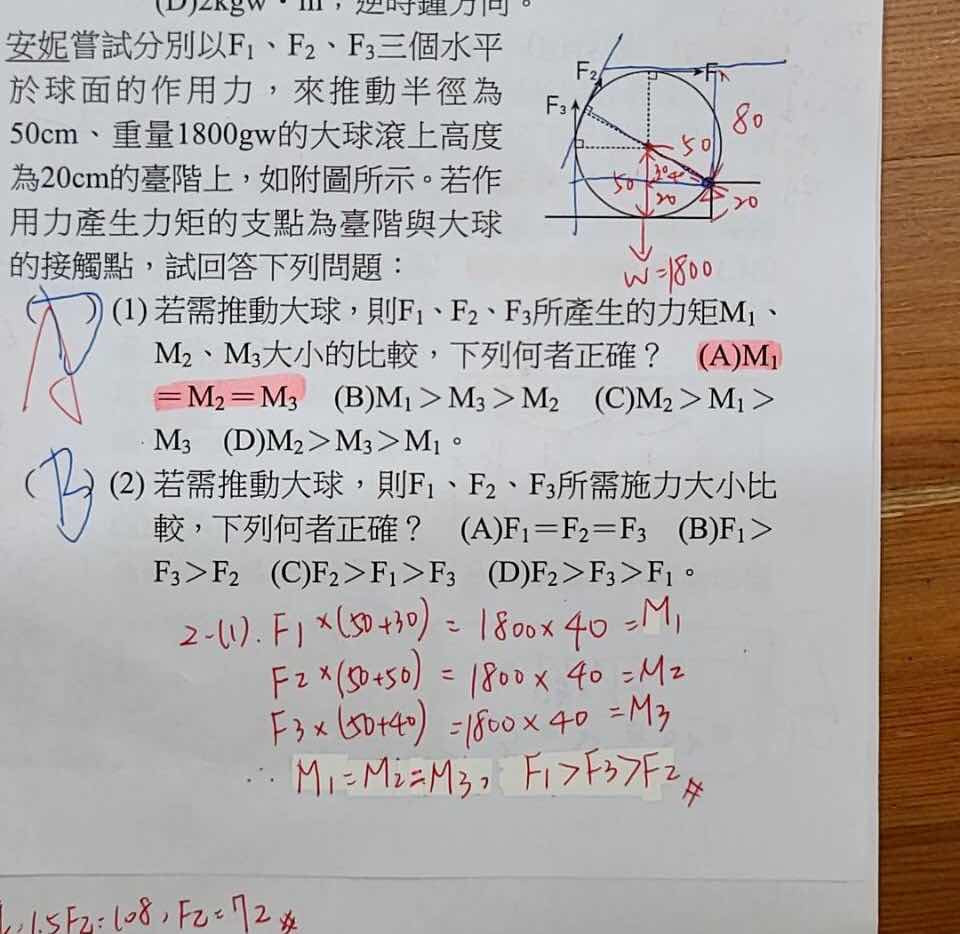 (D)2kgw・m,逆時鐘方向。
安妮嘗試分別以F₁、F₂、F₃三個水平
於球面的作用力,來推動半徑為
50cm、重量1800gw的大球滾上高度
為20cm的臺階上,如附圖所示。若作
用力產生力矩的支點為臺階與大球
的接觸點,試回答下列問題:
F₂
F₁
F₃
80
50
50
30
40
20
20
W=1800
(1) 若需推動大球,則F₁、F₂、F₃所產生的力矩M₁、
M₂、M₃大小的比較,下列何者正確? (A)M₁
=M₂=M₃ (B)M₁>M₃>M₂ (C)M₂>M₁>
M₃ (D)M₂>M₃>M₁。
(B) (2) 若需推動大球,則F₁、F₂、F₃所需施力大小比
較,下列何者正確? (A)F₁=F₂=F₃ (B)F₁>
F₃>F₂ (C)F₂>F₁>F₃ (D)F₂>F₃>F₁。
2-(1). F1×(50+30) = 1800×40 = M1
F2×(50+50) = 1800×40 = M2
F3×(50+40) =1800×40 = M3
∴ M1=M2=M3, F1>F3>F2 #
1.5F2=108, F2=72 #